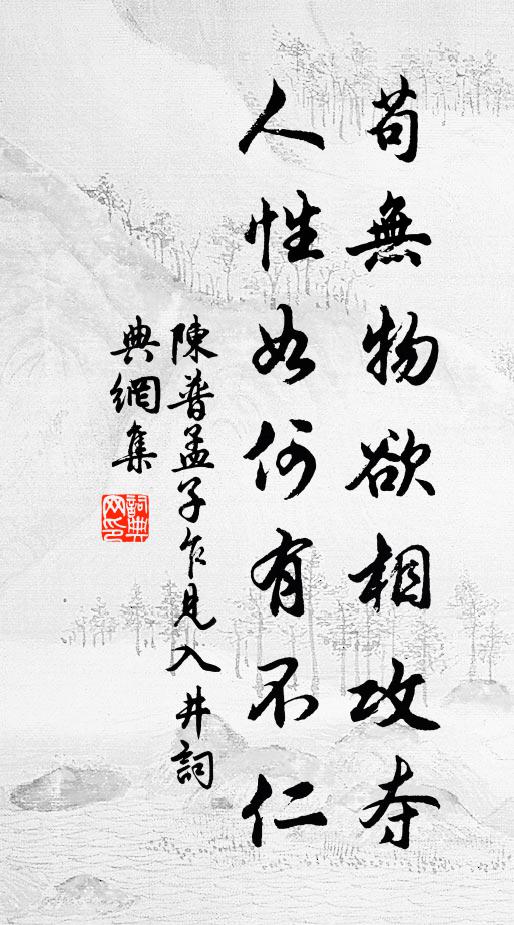 苟無物欲相攻夺
人性如何有不仁
陳普孟子乍見入井詞
典網集
詞典
网印